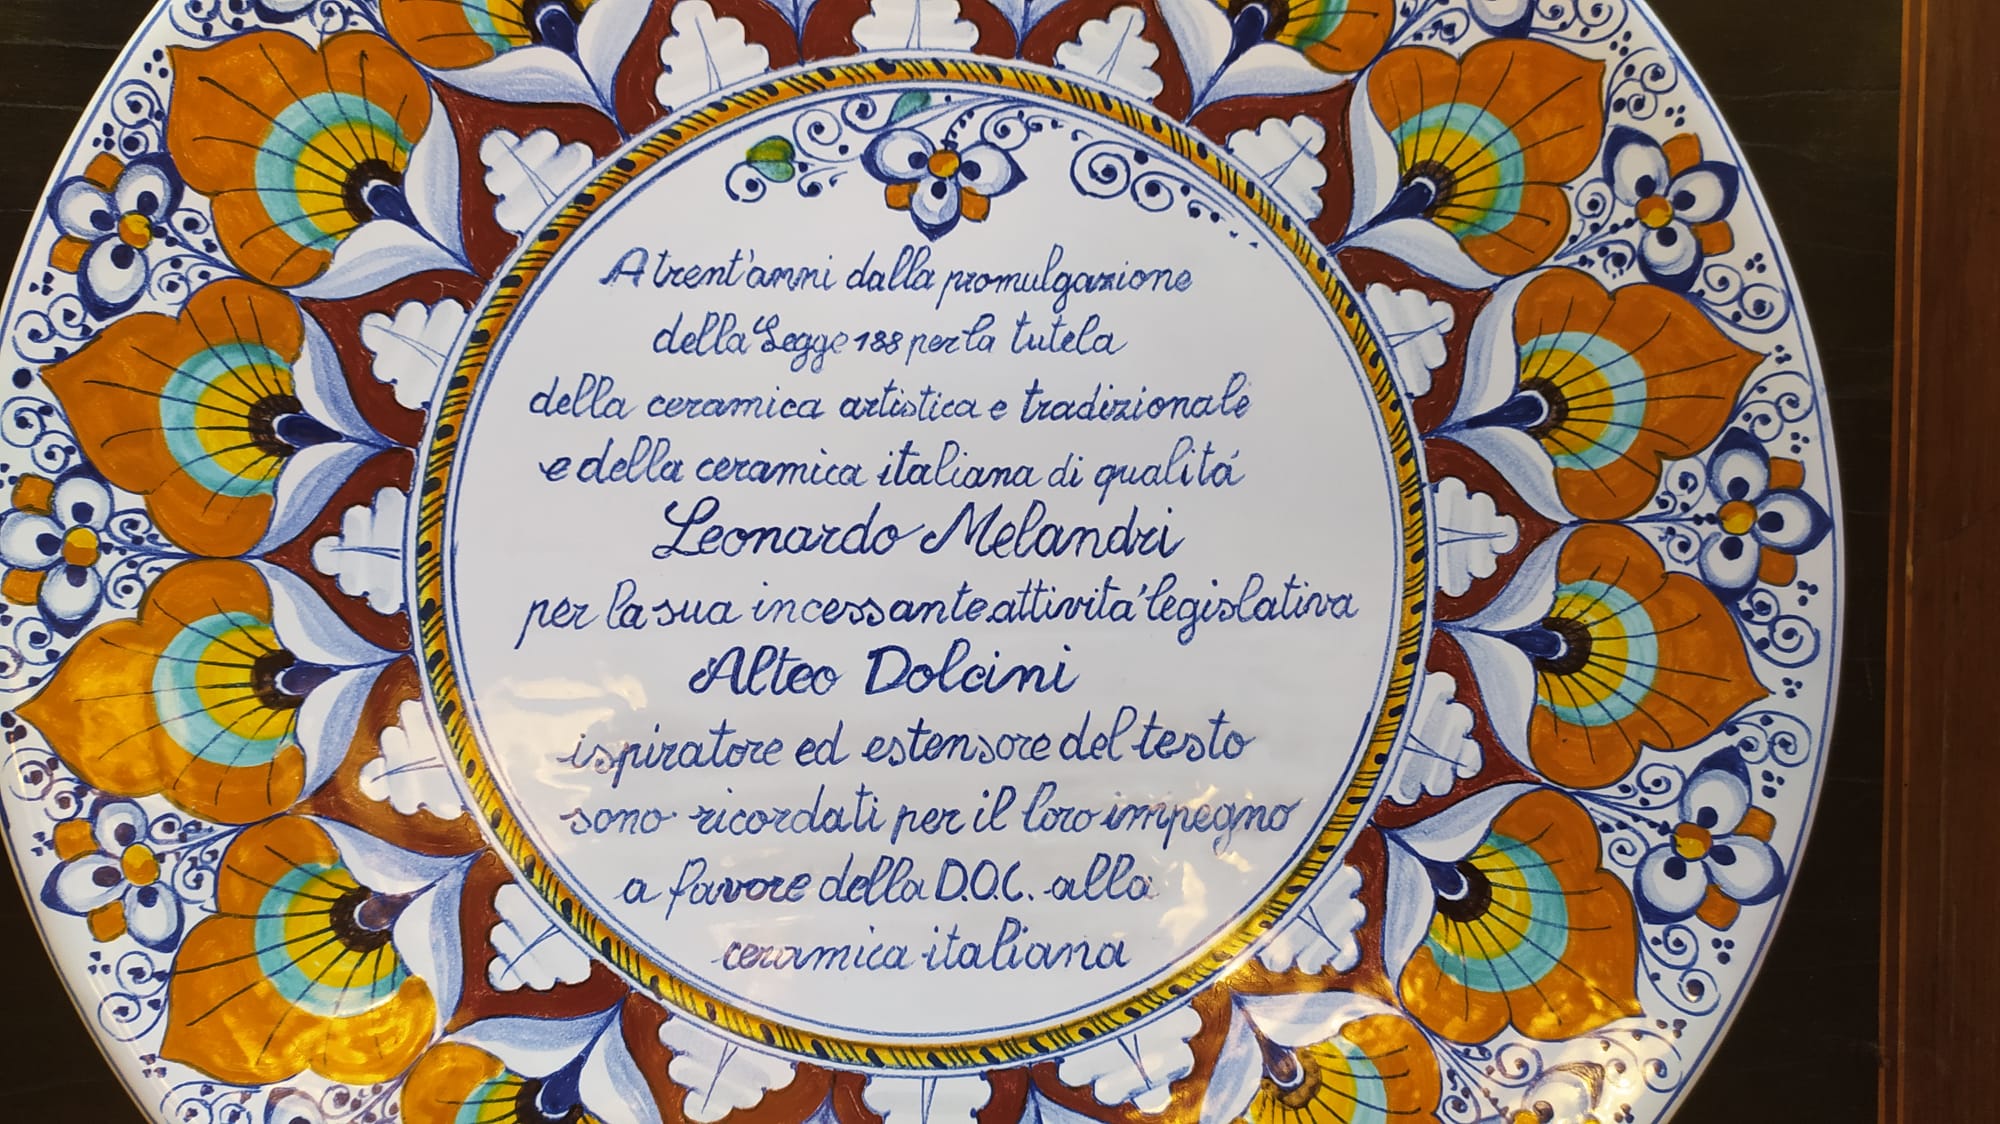 A trent'anni dalla promulgazione
della Legge 188 per la tutela
della ceramica artistica e tradizionale
e della ceramica italiana di qualitá
Leonardo Melandri
per la sua incessante attivita' legislativa
Alteo Dolcini
ispiratore ed estensore del testo
sono ricordati per il loro impegno
a favore della D.O.C. alla
ceramica italiana